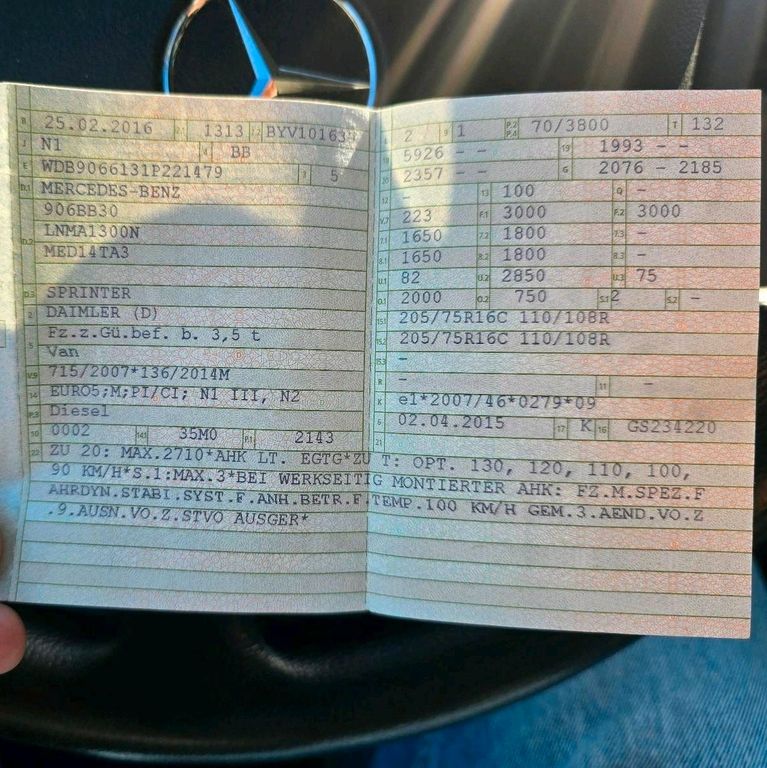 B 25.02.2016 2.1 1313 2.2 BYV101639
J N1 4 BB
E WDB9066131P221479 3 5
D.1 MERCEDES-BENZ
906BB30
D.2 LNMA1300N
MED14TA3
D.3 SPRINTER
2 DAIMLER (D)
5 Fz.z.Gü.bef. b. 3,5 t
Van
V.9 715/2007*136/2014M
14 EURO5;M;PI/CI; N1 III, N2
P.3 Diesel
10 0002 14.1 35M0 P.1 2143
L 2 9 1 P.2 P.4 70/3800 T 132
18 5926 - - 19 1993 - -
20 2357 - - G 2076 - 2185
12 - 13 100 Q -
V.7 223 F.1 3000 F.2 3000
7.1 1650 7.2 1800 7.3 -
8.1 1650 8.2 1800 8.3 -
U.1 82 U.2 2850 U.3 75
O.1 2000 O.2 750 S.1 2 S.2 -
15.1 205/75R16C 110/108R
15.2 205/75R16C 110/108R
15.3 -
R - 11 -
K e1*2007/46*0279*09
6 02.04.2015 17 K 16 GS234220
21
22 ZU 20: MAX.2710*AHK LT. EGTG*ZU T: OPT. 130, 120, 110, 100,
90 KM/H*S.1:MAX.3*BEI WERKSEITIG MONTIERTER AHK: FZ.M.SPEZ.F
AHRDYN.STABI.SYST.F.ANH.BETR.F.TEMP.100 KM/H GEM.3.AEND.VO.Z
.9.AUSN.VO.Z.STVO AUSGER*